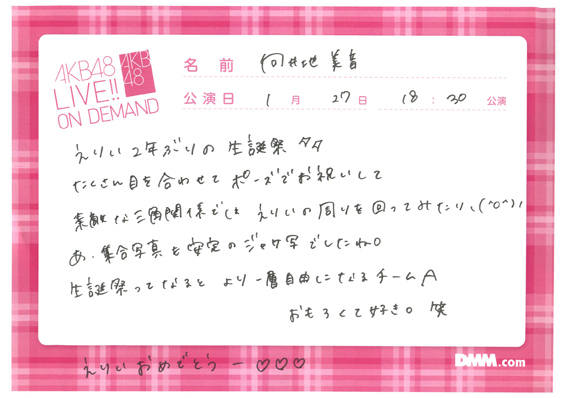 AKB48
LIVE!!
ON DEMAND
AKB
48
名前 向井地美音
公演日 1月 27日 18:30 公演
えりい2年ぶりの 生誕祭 タタ
たくさん目を合わせて ポーズでお祝いして
素敵な三角関係でした えりいの周りを回ってみたり、(^o^)ノ
あ、集合写真も安定のジャケ写でしたね。
生誕祭ってなると より一層自由になるチームA
おもろくて好き。 笑
えりいおめでとうー♡♡♡
DMM.com